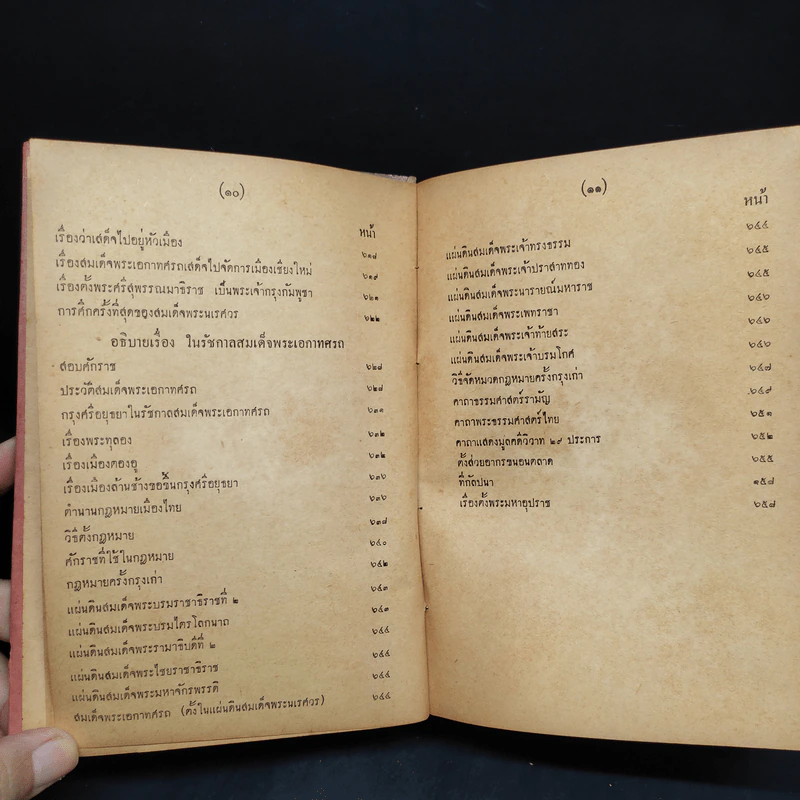 (๑๐)
หน้า
เรื่องว่าเสด็จไปอยู่หัวเมือง ๖๑๘
เรื่องสมเด็จพระเอกาทศรถเสด็จไปจัดการเมืองเชียงใหม่ ๖๑๙
เรื่องตั้งพระศรีสุพรรณมาธิราช เป็นพระเจ้ากรุงกัมพูชา ๖๒๑
การศึกครั้งที่สุดของสมเด็จพระนเรศวร ๖๒๒
อธิบายเรื่อง ในรัชกาลสมเด็จพระเอกาทศรถ
สอบศักราช ๖๒๘
ประวัติสมเด็จพระเอกาทศรถ ๖๒๘
กรุงศรีอยุธยาในรัชกาลสมเด็จพระเอกาทศรถ ๖๓๑
เรื่องพระทุลอง ๖๓๒
เรื่องเมืองตองอู ๖๓๒
เรื่องเมืองล้านช้างขอขึ้นกรุงศรีอยุธยา ๖๓๖
ตำนานกฎหมายเมืองไทย ๖๓๖
วิธีตั้งกฎหมาย ๖๓๗
ศักราชที่ใช้ในกฎหมาย ๖๔๐
กฎหมายครั้งกรุงเก่า ๖๔๒
แผ่นดินสมเด็จพระบรมราชาธิราชที่ ๒ ๖๔๓
แผ่นดินสมเด็จพระบรมไตรโลกนาถ ๖๔๓
แผ่นดินสมเด็จพระรามาธิบดีที่ ๒ ๖๔๔
แผ่นดินสมเด็จพระไชยราชาธิราช ๖๔๔
แผ่นดินสมเด็จพระมหาจักรพรรดิ ๖๔๔
สมเด็จพระเอกาทศรถ (ตั้งในแผ่นดินสมเด็จพระนเรศวร) ๖๔๔
(๑๑)
หน้า
แผ่นดินสมเด็จพระเจ้าทรงธรรม ๖๔๔
แผ่นดินสมเด็จพระเจ้าปราสาททอง ๖๔๕
แผ่นดินสมเด็จพระนารายณ์มหาราช ๖๔๕
แผ่นดินสมเด็จพระเพทราชา ๖๔๖
แผ่นดินสมเด็จพระเจ้าท้ายสระ ๖๔๖
แผ่นดินสมเด็จพระเจ้าบรมโกศ ๖๔๖
วิธีจัดหมวดกฎหมายครั้งกรุงเก่า ๖๔๗
คาถาธรรมศาสตร์รามัญ ๖๔๙
คาถาพระธรรมศาสตร์ไทย ๖๕๑
คาถาแสดงมูลคดีวิวาท ๒๙ ประการ ๖๕๒
ตั้งส่วยอากรขนอนตลาด ๖๕๕
ที่กัลปนา ๑๕๗
เรื่องตั้งพระมหาอุปราช ๖๕๗